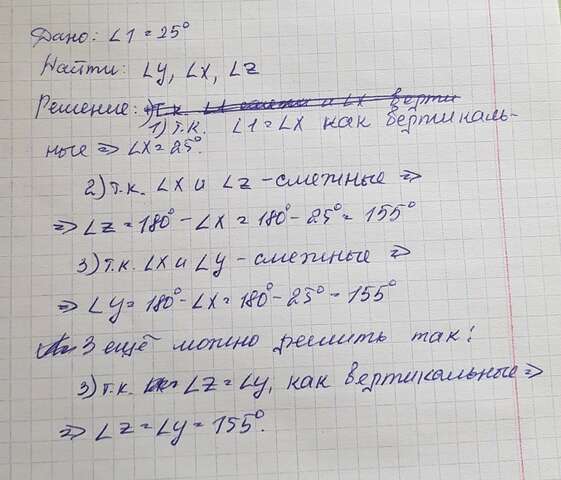 Дано: ∠1 = 25°
Найти: ∠y, ∠x, ∠z
Решение:
1) т.к. ∠1 = ∠x как вертикаль-
ные ⇒ ∠x = 25°.
2) т.к. ∠x и ∠z - смежные ⇒
⇒ ∠z = 180° - ∠x = 180° - 25° = 155°
3) т.к. ∠x и ∠y - смежные ⇒
⇒ ∠y = 180° - ∠x = 180° - 25° = 155°
3 ещё можно решить так:
3) т.к. ∠z = ∠y, как вертикальные ⇒
⇒ ∠z = ∠y = 155°.